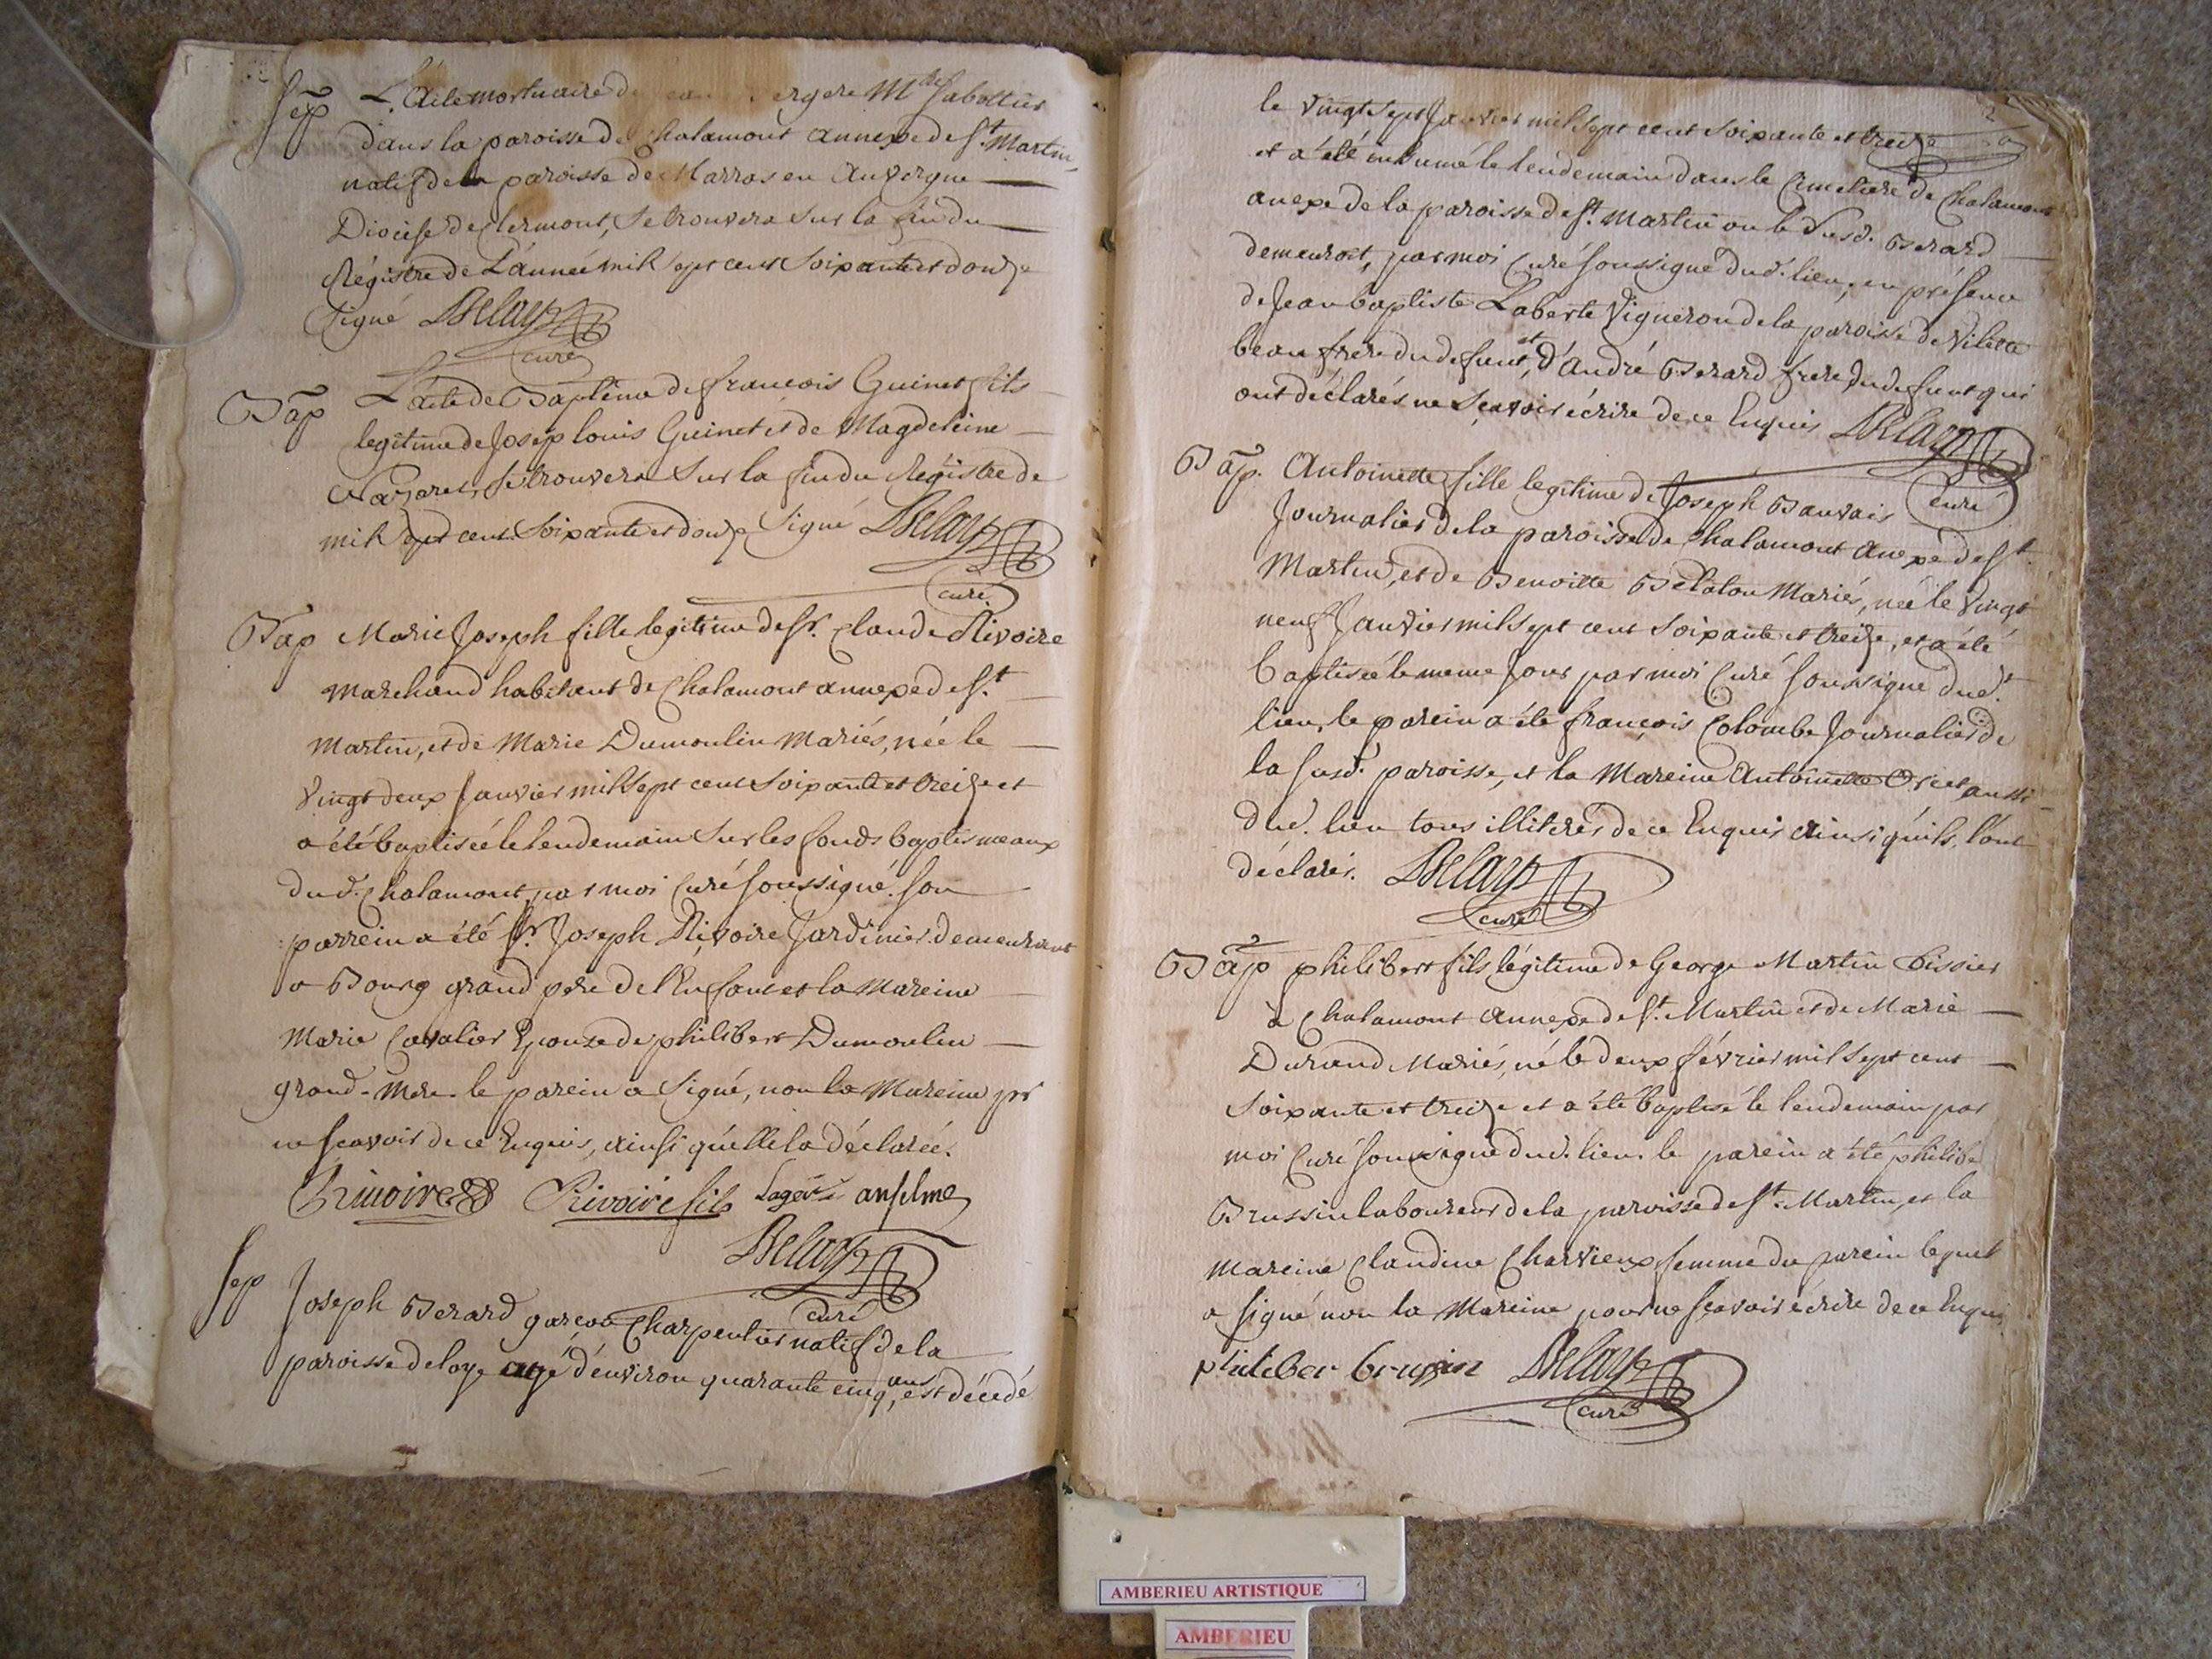 Sep
L'acte mortuaire de ergere Md sabottier
dans la paroisse de Chalamont annexe de St. Martin
natif de la paroisse de Marras en Auvergne
Diocèse de Clermont, se trouvera sur la fin du
Régistre de L'année mil sept cent soixante et douze
signé Delay
curé
Bap
L'acte de Baptême de françois Guinet fils
legitime de Josep louis Guinet et de Magdeleine
se trouvera sur la fin du Régistre de
mil sept cent soixante et douze signé Delay
curé
Bap Marie Joseph fille legitime de Sr. Claude Rivoire
marchand habitant de Chalamont annexe de St.
Martin, et de Marie Dumoulin mariés, née le
vingt deux Janvier mil sept cent soixante et treize et
a été baptisée le lendemain sur les fonds baptismeaux
dud. Chalamont par moi Curé soussigné. son
parrein a été Sr. Joseph Rivoire Jardinier demeurant
a Bourg grand pere de l'Enfant et la Mareine
Marie Cavalier Epouse de philibert Dumoulin
grand-mere. le parein a signé, non la Mareine pr
ne scavoir de ce Enquis, ainsi qu'elle la déclarée.
Rivoire Rivoire fils Lagér anselme
Delay
curé
Sep Joseph Berard garçon Charpentier natif de la
paroisse de loye agé d'environ quarante cinq ans, est décédé
le vingt sept Janvier mil sept cent soixante et treize
et a été inhumé le lendemain dans le Cimetiere de Chalamont
anexe de la paroisse de St. Martin ou le susd. Berard
demeuroit, par moi Curé soussigné dud. lieu, en présence
de Jean baptiste Laberte Vigneron de la paroisse de Vilette
beau frere du defunt, et d'André Berard frere du defunt qui
ont déclarés ne sçavoir écrire de ce Enquis Delay
curé
Bap. Antoinette fille legitime de Joseph Bauvais
Journalier de la paroisse de Chalamont anexe de St.
Martin, et de Benoitte Belaton Mariés, née le vingt
neuf Janvier mil sept cent soixante et treize, et a été
baptisée le meme jour par moi Curé soussigné dud.
lieu, le parein a été françois Colombe Journalier de
la susd. paroisse, et la Mareine Antoinette aussi
dud. lieu tous illiterés de ce Enquis ainsi qu'ils l'ont
déclarés. Delay
curé
Bap philibert fils légitime de George Martin Tissier
à Chalamont annexe de St. Martin et de Marie
Durand Mariés, né le deux février mil sept cent
soixante et treize et a été baptisé le lendemain par
moi Curé soussigné dud. lieu. le parein a été philibe
Brussin laboureur de la paroisse de St. Martin, et la
Mareine Claudine Charvieux femme du parein lequel
a signé non la Mareine pour ne scavoir écrire de ce Enquis
philiber brussin Delay
curé
AMBERIEU ARTISTIQUE
AMBERIEU